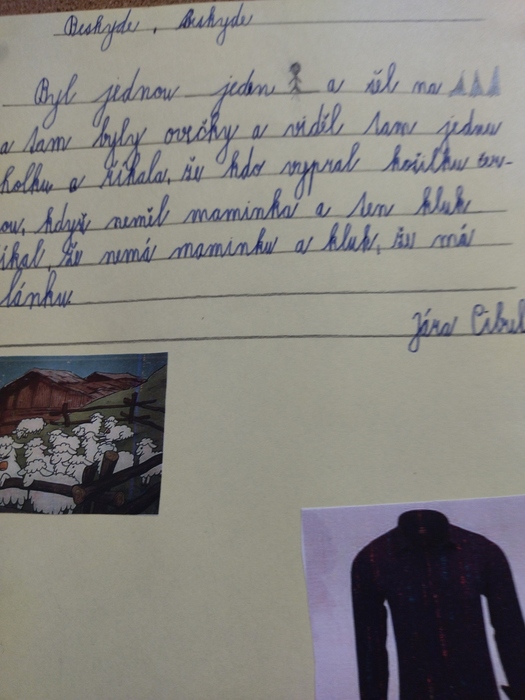 Beskyde, Beskyde
Byl jednou jeden a šel na
a tam byly ovečky a viděl tam jednu
holku a říkala, že kdo vypral košilku čer-
ou, když neměl maminka a ten kluk
íkal, že nemá maminku a kluk, že má
lánku
Jára Cibul